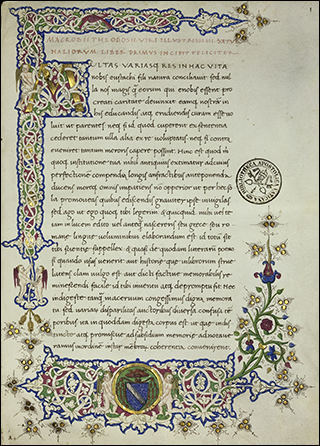 MACROBII THEODOSII VIRI ILLVSTRISSIMI SATVR
NALIORVM LIBER PRIMVS INCIPIT FELICITER
MVLTAS VARIASQ; RES IN HAC VITA
nobis eustachi fili natura conciliauit sed nul
la nos magis q̃ eorum qui enobis essent pro
creati caritate deuinxit eamq; nostrã in
his educandis atq; erudiendis curam esse uo
luit ut parentes neq; si id quod cuperent ex sententia
cederet tantum ulla alia ex re uoluptatis neq; si contra
eueniret tantum meroris capere possent. Hinc est quod m
quoq; institutione tua nihil antiquius estimatur adcuius
perfectionem compendia longis anfractibus anteponenda
ducens moreq; omnis impatiens nõ opperior ut per hec so
la promoueas quibus ediscendis grauiter ipse inuigilas
sed ago ut ego quoq; tibi legerim & quicquid mihi uel te
iam in lucem edito uel anteq̃ nascereris seu grece seu ro
mane lingue uoluminibus elaboratum est id totũ sit
tibi scientie supellex & quasi de quodam litterarũ peno
si quando usus uenerit aut historie que inlibrorum strue
latens clam uulgo est aut dicti factiue memorabilis re
miniscendi facile id tibi inuentu atq; depromptu sit Nec
indigeste tanq̃ inaceruum congessimus digna memora
tu sed uariarum disparilitas auctoribus diuersa confusa te
poribus ita in quoddam digesta corpus est ut que indis
tincte atq; promiscue adsubsidium memorie adnotaue
ramus inordinem instar mẽbrorũ coherentia conuenirent.
BIBLIOTHECA APOSTOLICA VATICANA